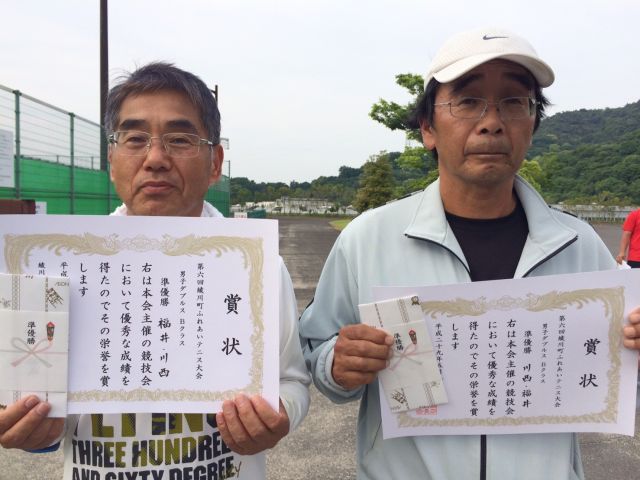 賞状
第六回綾川町ふれあいテニス大会
男子ダブルス Bクラス
準優勝 福井・川西
右は本会主催の競技会
において優秀な成績を
得たのでその栄誉を賞
します
平成
綾川
準優勝
THREE HUNDRED
AND SIXTY DEGREE
賞状
第六回綾川町ふれあいテニス大会
男子ダブルス Bクラス
準優勝 川西・福井
右は本会主催の競技会
において優秀な成績を
得たのでその栄誉を賞
します
平成二十九年五月
準優勝